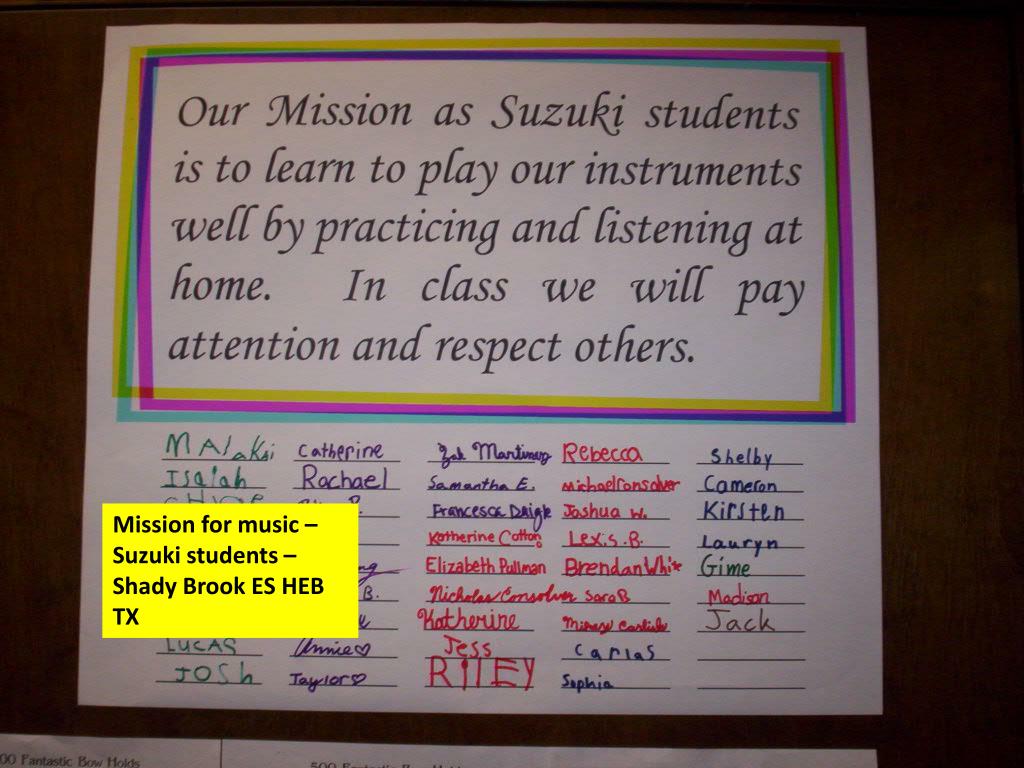 Our Mission as Suzuki students
is to learn to play our instruments
well by practicing and listening at
home. In class we will pay
attention and respect others.
MAlaKai Catherine Zak Martinez Rebecca Shelby
Isaiah Rachael Samantha E. Cameron
Francesca Joshua W. Kirsten
Katherine Cotton Lexis B. Lauryn
Elizabeth Pullman Brendan White Gime
B. Nicholas Consolver Sara B Madison
Katherine Jack
LUCAS Annie♡ Jess Carlas
JOSh Taylor♡ RIlEY Sophia
Mission for music –
Suzuki students –
Shady Brook ES HEB
TX
00 Fantastic Bow Holds 500 Fantastic Bow